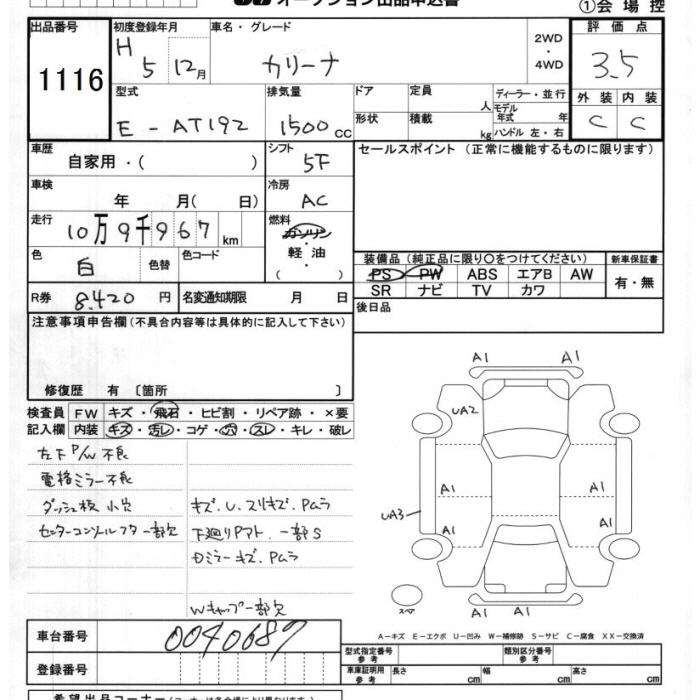 オークション出品申込書
①会場控
出品番号 初度登録年月 車名・グレード 評価点
1116 H 5 12月 カリーナ 2WD・4WD 3.5
型式 排気量 ドア 定員 人 ディーラー・並行 外装 内装
E-AT192 1500cc 形状 積載 kg モデル年式 年 ハンドル 左・右 C C
車歴 シフト セールスポイント (正常に機能するものに限ります)
自家用・( ) 5F
車検 冷房
年 月( 日) AC
走行 燃料
10万9千967km ガソリン
色 色替 色コード 軽油
白 ( )
装備品 (純正品に限り〇をつけてください) 新車保証書
PS PW ABS エアB AW 有・無
SR ナビ TV カワ
R券 8,420円 名変通知期限 月 日
後日品
注意事項申告欄(不具合内容等は具体的に記入して下さい)
修復歴 有 〔箇所 〕
検査員 FW キズ・飛石・ヒビ割・リペア跡・×要
記入欄 内装 キズ・汚レ・コゲ・穴・スレ・キレ・破レ
左下P/W不良
電格ミラー不良
ダッシュ板小穴 キズ.U.スリキズ.Pムラ
センターコンソールフタ一部欠 下廻りPマト.一部S
Dミラーキズ.Pムラ
Wキャップ一部欠
A1 A1
UA2
A1 A1
UA3 A1 A1
スペア A1 A1
A-キズ E-エクボ U-凹み W-補修跡 S-サビ C-腐食 XX-交換済
車台番号 0040687
登録番号
型式指定番号 参考 類別区分番号 参考
車庫証明用 参考 長さ cm 幅 cm 高さ cm
希望出品コーナー